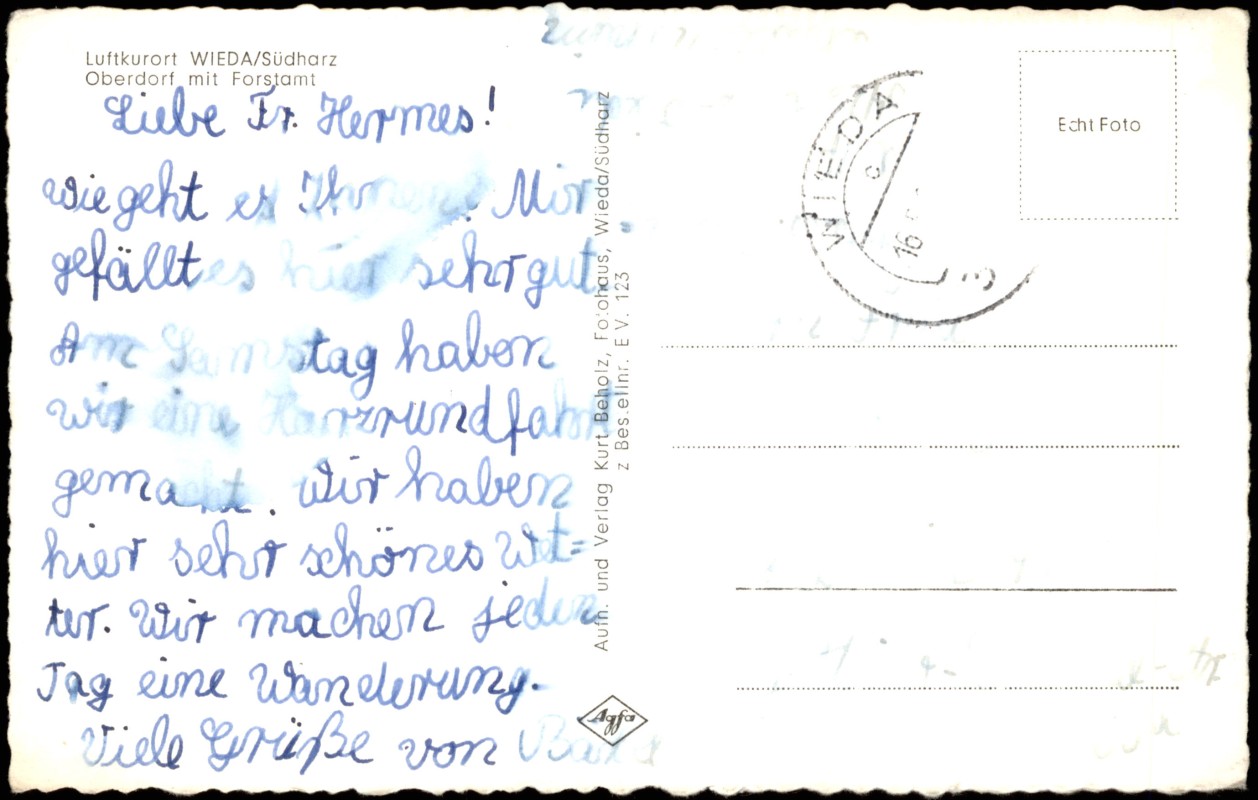 Luftkurort WIEDA/Südharz
Oberdorf mit Forstamt
Liebe Fr. Hermes!
wie geht es Ihnen? Mir
gefällt es hier sehr gut.
Am Samstag haben
wir eine Harzrundfahrt
gemacht. Wir haben
hier sehr schönes Wet=
ter. Wir machen jeden
Tag eine Wanderung.
Viele Grüße von
Aufn. und Verlag Kurt Beholz, Fotohaus, Wieda/Südharz
z Bestellnr. E V. 123
Agfa
WIEDA
16
Echt Foto